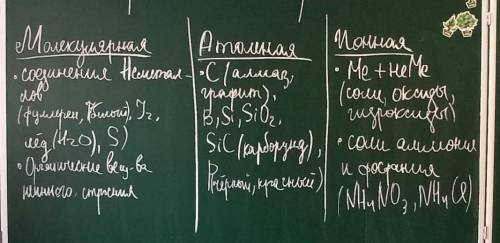 Молекулярная
• соединения Неметал-
лов
(фуллерен, P(белый), I₂,
лёд (H₂O), S)
• Органические вещ-ва
немного. строения
Атомная
• C (алмаз,
графит),
B, Si, SiO₂,
SiC (карборунд),
P(чёрный, красный)
Ионная
• Me + неMe
(соли, оксиды,
гидроксиды)
• соли аммония
и фосфония
(NH₄NO₃, NH₄Cl)